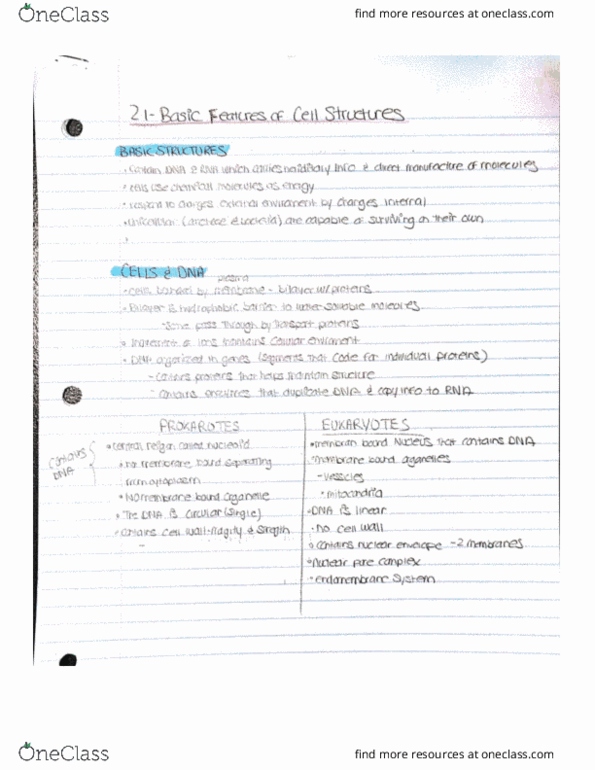 OneClass
find more resources at oneclass.com
2.1- Basic Features of Cell Structures
BASIC STRUCTURES
• Contain DNA & RNA which carries hereditary info & direct manufacture of molecules
• cells use chemical molecules as energy
• respond to changes external enviroment by changes internal
• Unicellular (archaea & bacteria) are capable of surviving on their own
CELLS & DNA
plasma
• cells bounded by membrane - bilayer w/ proteins
• Bilayer is hydrophobic barrier to water soluable molecules
- Some pass through by transport proteins
• of ions maintains cellular enviroment
• DNA organized in genes (segments that code for individual proteins)
- contains proteins that helps maintain structure
- contains enzymes that duplicate DNA & copy info to RNA
PROKAROTES
EUKARYOTES
contains
DNA
• central reigon called nucleoid
• no membrane bound separating
from cytoplasm
• NO membrane bound organelle
• The DNA is circular (single)
• contains cell wall - rigidity & strength
-
• membran bound nucleus that contains DNA
• membrane bound organelles
- Vesicles
• mitocondria
• DNA is linear
• no cell wall
• contains nuclear envelope - 2 membranes
• Nuclear pore complex
• endomembrane system
OneClass
find more resources at oneclass.com